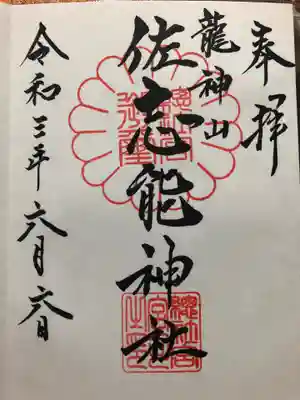 奉拝
龍神山
佐志能神社
令和三年六月六日